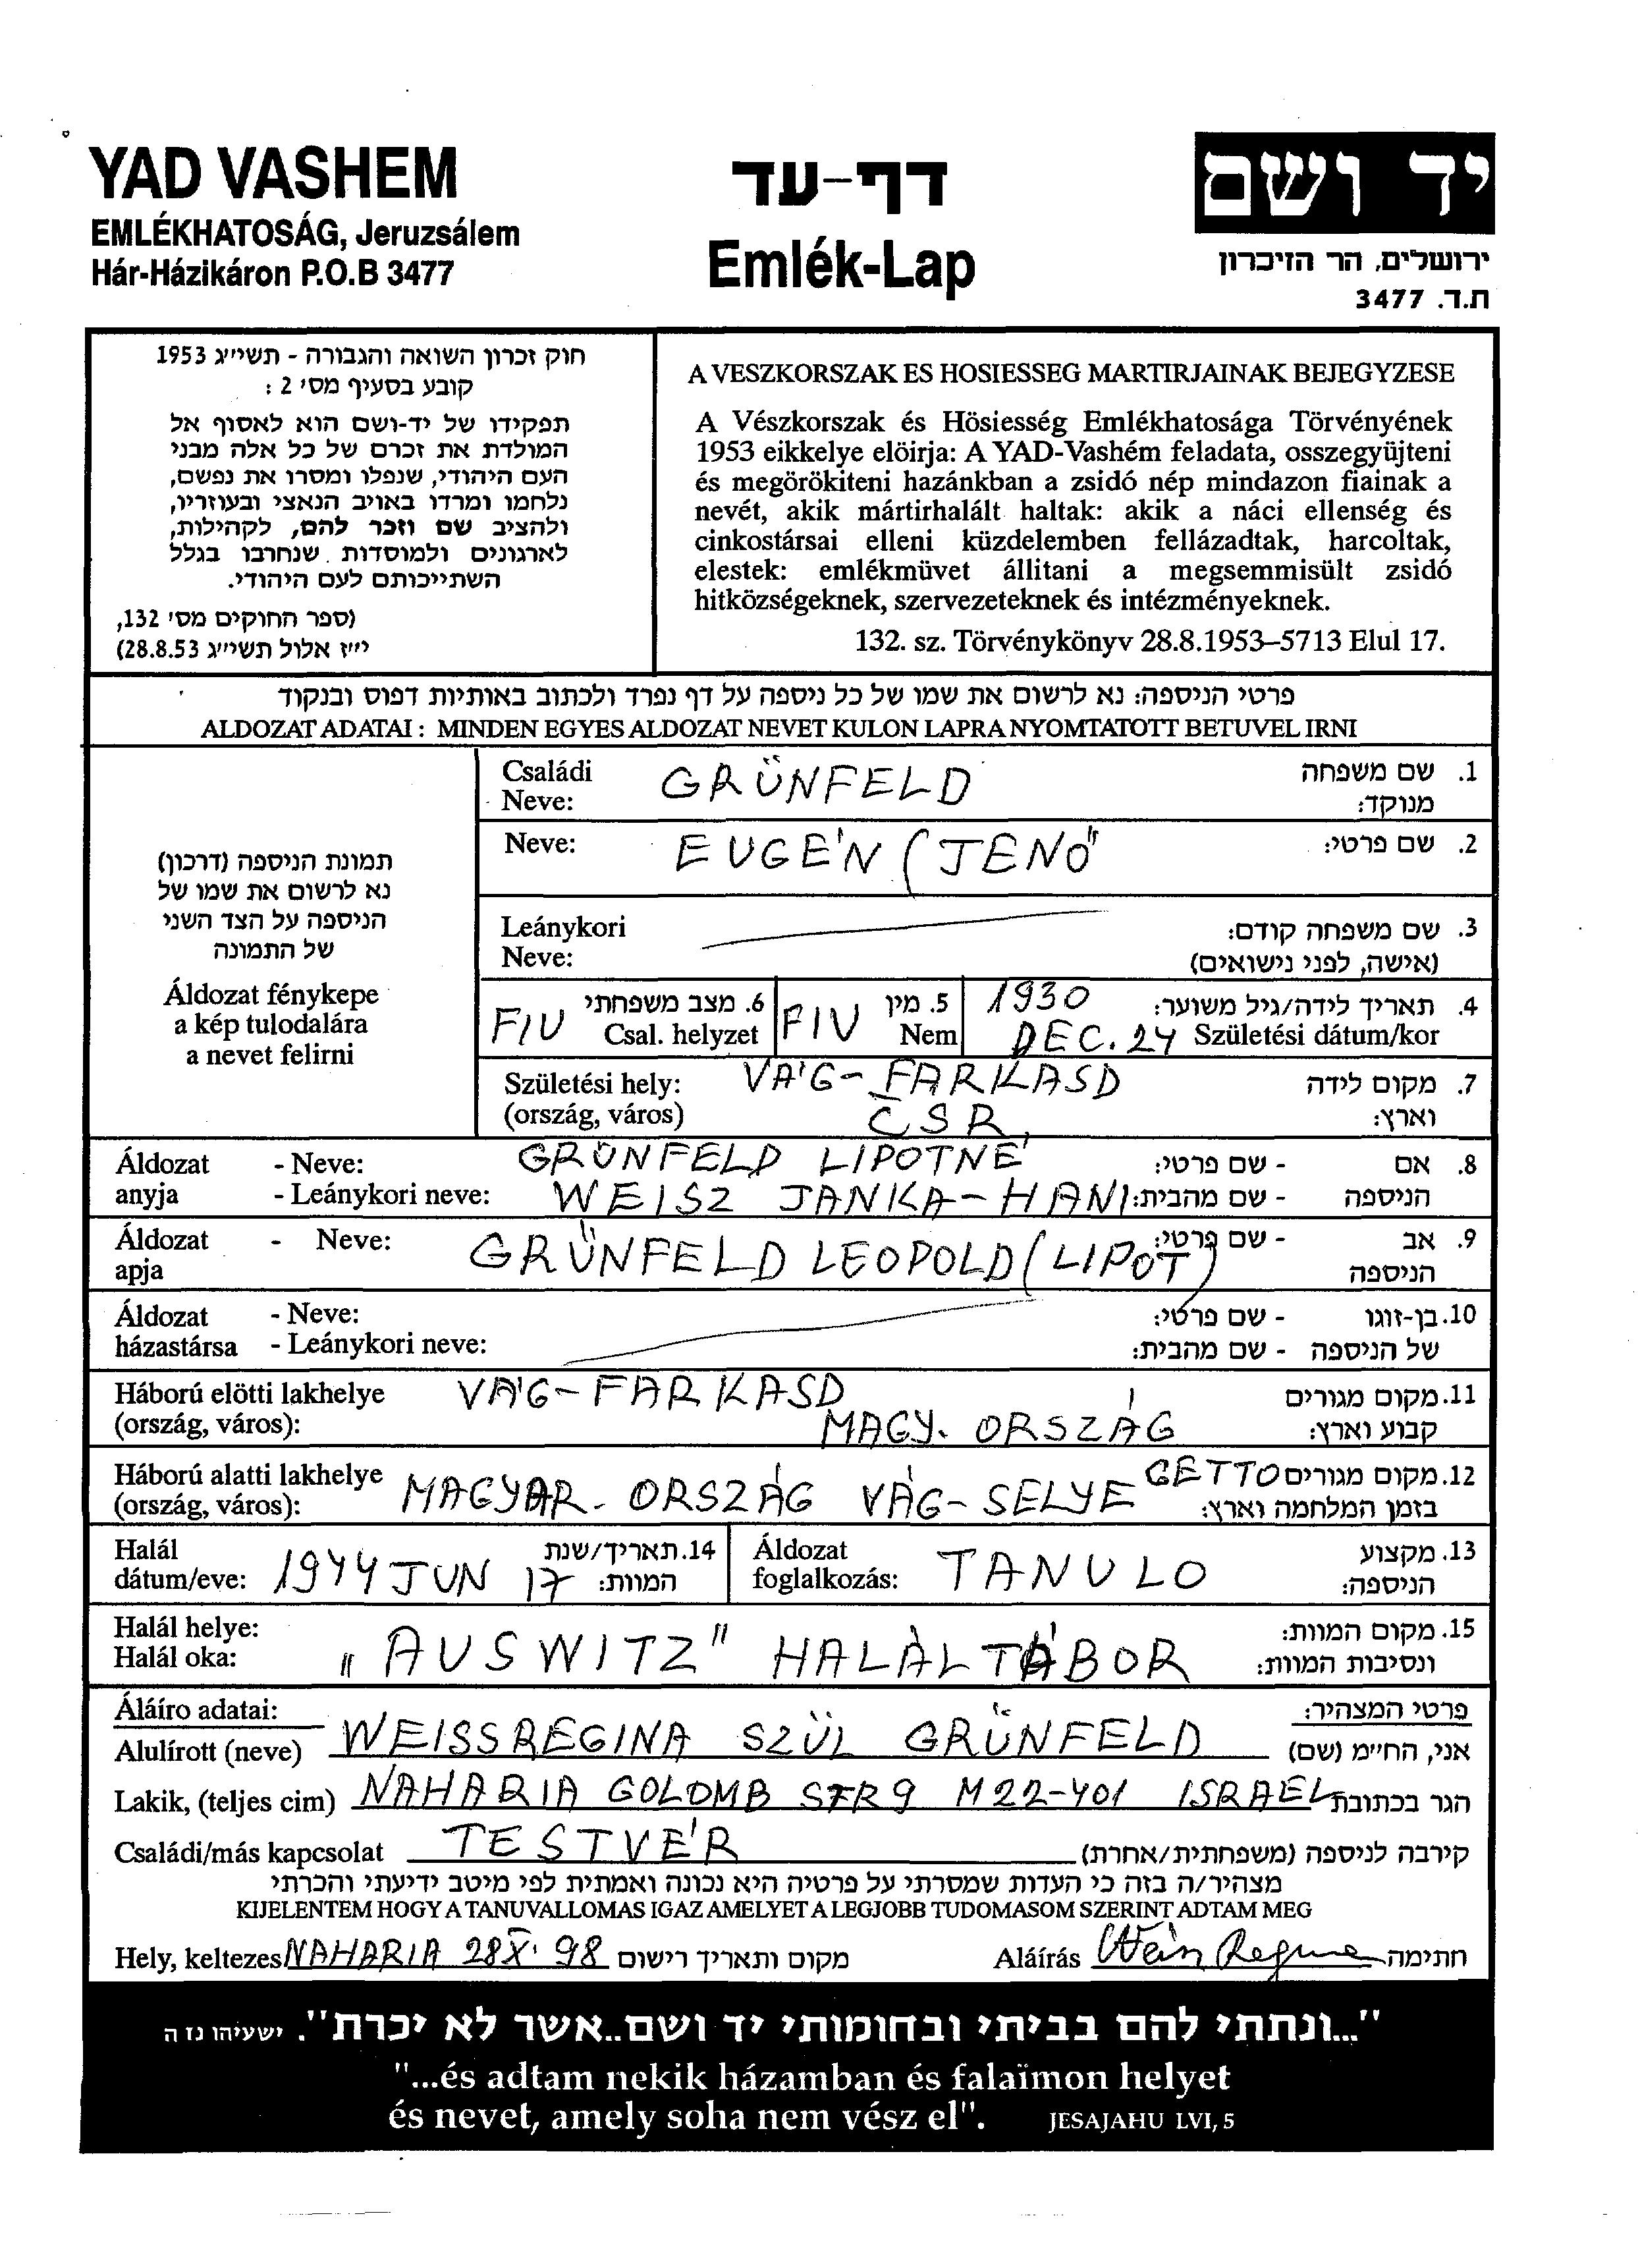 YAD VASHEM
EMLÉKHATOSÁG, Jeruzsálem
Hár-Házikáron P.O.B 3477
דף-עד
Emlék-Lap
יד ושם
ירושלים, הר הזיכרון
ת.ד. 3477
חוק זכרון השואה והגבורה - תשי״ג 1953
קובע בסעיף מס׳ 2 :
תפקידו של יד-ושם הוא לאסוף אל
המולדת את זכרם של כל אלה מבני
העם היהודי, שנפלו ומסרו את נפשם,
נלחמו ומרדו באויב הנאצי ובעוזריו,
ולהציב שם וזכר להם, לקהילות,
לארגונים ולמוסדות שנחרבו בגלל
השתייכותם לעם היהודי.
(ספר החוקים מס׳ 132,
י״ז אלול תשי״ג 28.8.53)
A VESZKORSZAK ES HOSIESSEG MARTIRJAINAK BEJEGYZESE
A Vészkorszak és Hösiesség Emlékhatosága Törvényének
1953 eikkelye elöirja: A YAD-Vashém feladata, osszegyüjteni
és megörökiteni hazánkban a zsidó nép mindazon fiainak a
nevét, akik mártirhalált haltak: akik a náci ellenség és
cinkostársai elleni küzdelemben fellázadtak, harcoltak,
elestek: emlékmüvet állitani a megsemmisült zsidó
hitközségeknek, szervezeteknek és intézményeknek.
132. sz. Törvénykönyv 28.8.1953–5713 Elul 17.
פרטי הניספה: נא לרשום את שמו של כל ניספה על דף נפרד ולכתוב באותיות דפוס ובנקוד
ALDOZAT ADATAI : MINDEN EGYES ALDOZAT NEVET KULON LAPRA NYOMTATOTT BETUVEL IRNI
תמונת הניספה (דרכון)
נא לרשום את שמו של
הניספה על הצד השני
של התמונה
Áldozat fénykepe
a kép tulodalára
a nevet felirni
Családi
Neve:
GRÜNFELD
1. שם משפחה
מנוקד:
Neve:
EUGÉN (JENŐ
2. שם פרטי:
Leánykori
Neve:
3. שם משפחה קודם:
(אישה, לפני נישואים)
FIU
6. מצב משפחתי
Csal. helyzet
FIU
5. מין
Nem
1930
DEC. 24
4. תאריך לידה/גיל משוער:
Születési dátum/kor
Születési hely:
(ország, város)
VÁG-FARKASD
ČSR
7. מקום לידה
וארץ:
Áldozat - Neve:
GRÜNFELD LIPOTNÉ
8. אם - שם פרטי:
anyja - Leánykori neve:
WEISZ JANKA-HANI
הניספה - שם מהבית:
Áldozat - Neve:
apja
GRÜNFELD LEOPOLD (LIPOT)
9. אב - שם פרטי:
הניספה
Áldozat - Neve:
házastársa - Leánykori neve:
10. בן-זוגו - שם פרטי:
של הניספה - שם מהבית:
Háború elötti lakhelye
(ország, város):
VÁG-FARKASD
MAGY. ORSZÁG
11. מקום מגורים
קבוע וארץ:
Háború alatti lakhelye
(ország, város):
MAGYAR-ORSZÁG VÁG-SELYE GETTO
12. מקום מגורים
בזמן המלחמה וארץ:
Halál
dátum/eve:
1944 JUN 17
14. תאריך/שנת
המוות:
Áldozat
foglalkozás:
TANULO
13. מקצוע
הניספה:
Halál helye:
Halál oka:
„AUSWITZ" HALÁLTÁBOR
15. מקום המוות:
ונסיבות המוות:
Áláíro adatai:
פרטי המצהיר:
Alulírott (neve) WEISS REGINA SZÜL GRÜNFELD אני, החי״מ (שם)
Lakik, (teljes cim) NAHARIA GOLOMB STR 9 M 22-401 ISRAEL הגר בכתובת
Családi/más kapcsolat TESTVÉR קירבה לניספה (משפחתית/אחרת)
מצהיר/ה בזה כי העדות שמסרתי על פרטיה היא נכונה ואמתית לפי מיטב ידיעתי והכרתי
KIJELENTEM HOGY A TANUVALLOMAS IGAZ AMELYET A LEGJOBB TUDOMASOM SZERINT ADTAM MEG
Hely, keltezes NAHARIA 28 X. 98 מקום ותאריך רישום Aláírás Weiss Regina חתימה
"...ונתתי להם בביתי ובחומותי יד ושם..אשר לא יכרת". ישעיהו נז ה
"...és adtam nekik házamban és falaïmon helyet
és nevet, amely soha nem vész el". JESAJAHU LVI, 5